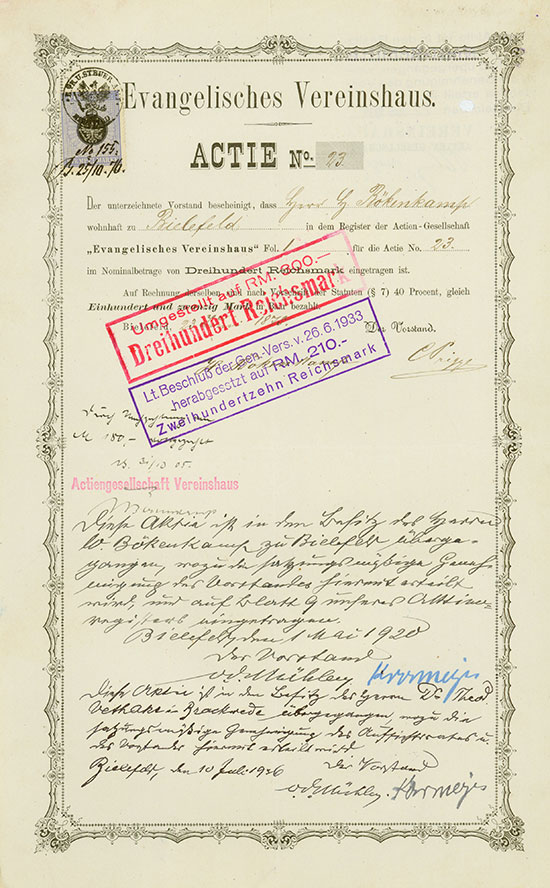 Evangelisches Vereinshaus.
ACTIE No. 23
No 155.
d. 25/10.76.
Der unterzeichnete Vorstand bescheinigt, dass Herr H Bökenkamp
wohnhaft zu Bielefeld in dem Register der Actien-Gesellschaft
"Evangelisches Vereinshaus" Fol. 1 für die Actie No. 23.
im Nominalbetrage von Dreihundert Reichsmark eingetragen ist.
Auf Rechnung derselben sind nach Vorschrift der Statuten (§ 7) 40 Procent, gleich
Einhundert und zwanzig Mark in Baar bezahlt.
Der Vorstand.
Umgestellt auf RM. 300.—
Dreihundert Reichsmark
Lt. Beschluß der Gen.-Vers. v. 26.6.1933
herabgesetzt auf RM. 210.—
Zweihundertzehn Reichsmark
Durch
M 180.–
Actiengesellschaft Vereinshaus
Diese Aktie ist in den Besitz des Herrn
W. Bökenkamp zu Bielefeld überge-
gangen, wozu die satzungsmäßige Geneh-
migung des Vorstandes hiermit erteilt
wird, und auf Blatt 9 unseres Aktien-
registers eingetragen.
Bielefeld, den 1 Mai 1920
Der Vorstand
v.d. Mühlen Kormeyer
Diese Aktie ist in den Besitz des Herrn Dr. Theod
in Brackwede übergegangen, wozu die
satzungsmäßige Genehmigung des Aufsichtsrates u.
des Vorstandes hiermit erteilt wird
Bielefeld, den 10 Juli 1936 Der Vorstand
v.d. Mühlen Kormeyer